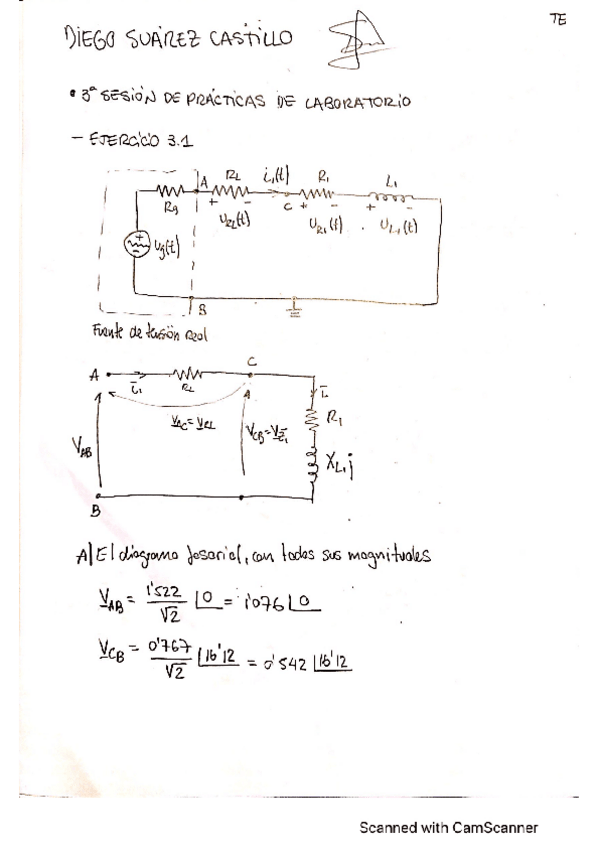 TE
DIEGO SUÁREZ CASTILLO
• 3ª SESIÓN DE PRÁCTICAS DE LABORATORIO
- EJERCICIO 3.1
A R2 i1(t) R1 L1
Rg + - C + - + -
UR2(t) UR1(t) UL1(t)
ug(t)
B
Fuente de tensión Real
C
A
R2
VAB
VCB
R1
XL1j
B
A| El diagrama fasorial, con todas sus magnitudes
VAB = 1'522/√2 |0 = 1'076 |0
VCB = 0'767/√2 |16'12 = 0'542 |16'12
Scanned with CamScanner